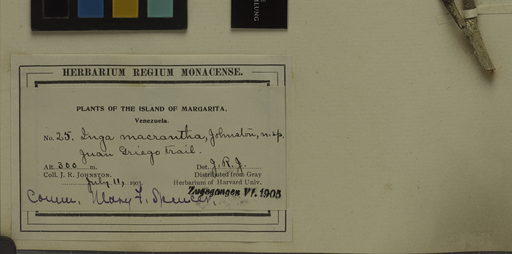 HERBARIUM REGIUM MONACENSE.
PLANTS OF THE ISLAND OF MARGARITA,
Venezuela.
No. 25. Inga macrantha, Johnston, n. sp.
Juan Griego trail.
Alt. 300 m. Det. J. R. J.
Coll. J. R. JOHNSTON. Distributed from Gray
July 11, 1903. Herbarium of Harvard Univ.
Zugegangen VI. 1905
Comm. Mary F. Spencer.